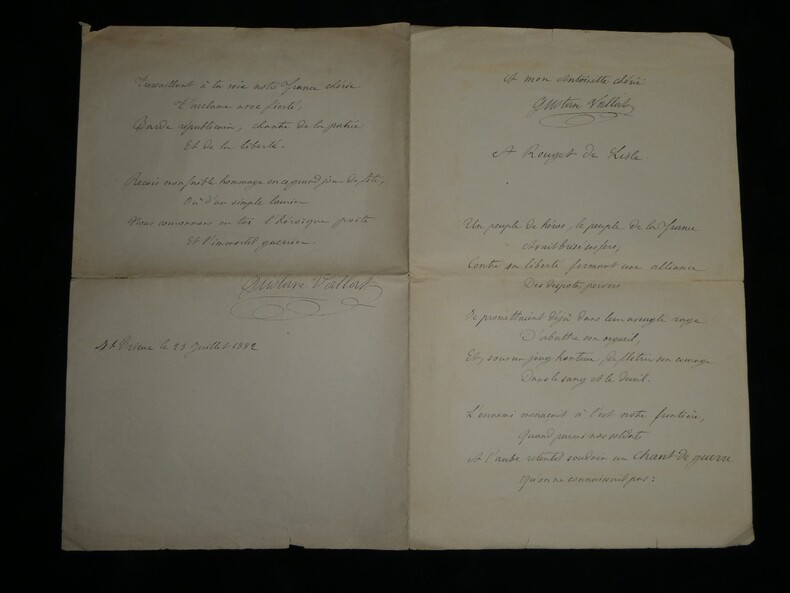 Tressaillant à ta voix notre France chérie
T'acclame avec fierté,
Barde républicain, chantre de la patrie
Et de la liberté.
Reçois mon faible hommage en ce grand jour de fête,
Où d'un simple laurier
Nous couronnons en toi l'héroïque poète
Et l'immortel guerrier
Gustave Vallat
le 23 Juillet 1882
A mon Antoinette chérie
Gustave Vallat
A Rouget de Lisle.
Un peuple de héros, le peuple de la France
Avait brisé ses fers,
Contre sa liberté formant une alliance
Des despotes pervers
Se promettaient déjà dans leur aveugle rage
D'abattre son orgueil,
Et, sous un joug honteux, de flétrir son courage
Dans le sang et le deuil.
L'ennemi menaçait à l'est notre frontière,
Quand parmi nos soldats
A l'aube retentit soudain un chant de guerre
Qu'on ne connaissait pas :